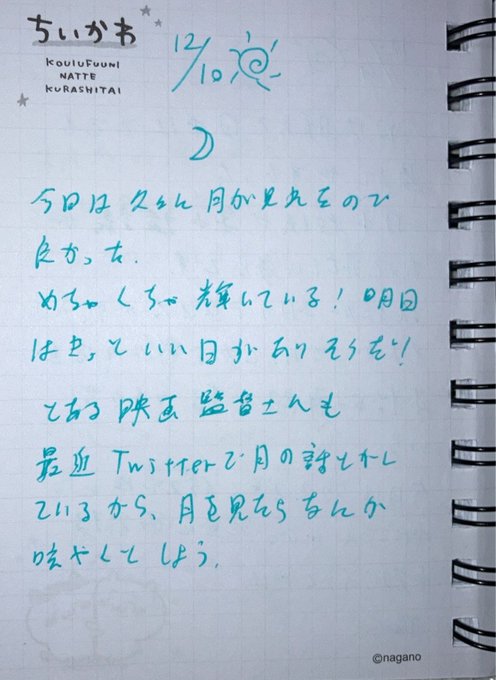 ちいかわ
KOUIUFUUNI
NATTE
KURASHITAI
12/10
今日は久々に月が見れたので
良かった.
めちゃくちゃ輝いている！明日
はきっといい日がありそうだ！
とある映画監督さんも
最近Twitterで月の話とかし
ているから、月を見たらなんか
呟やくてしよう.
©nagano